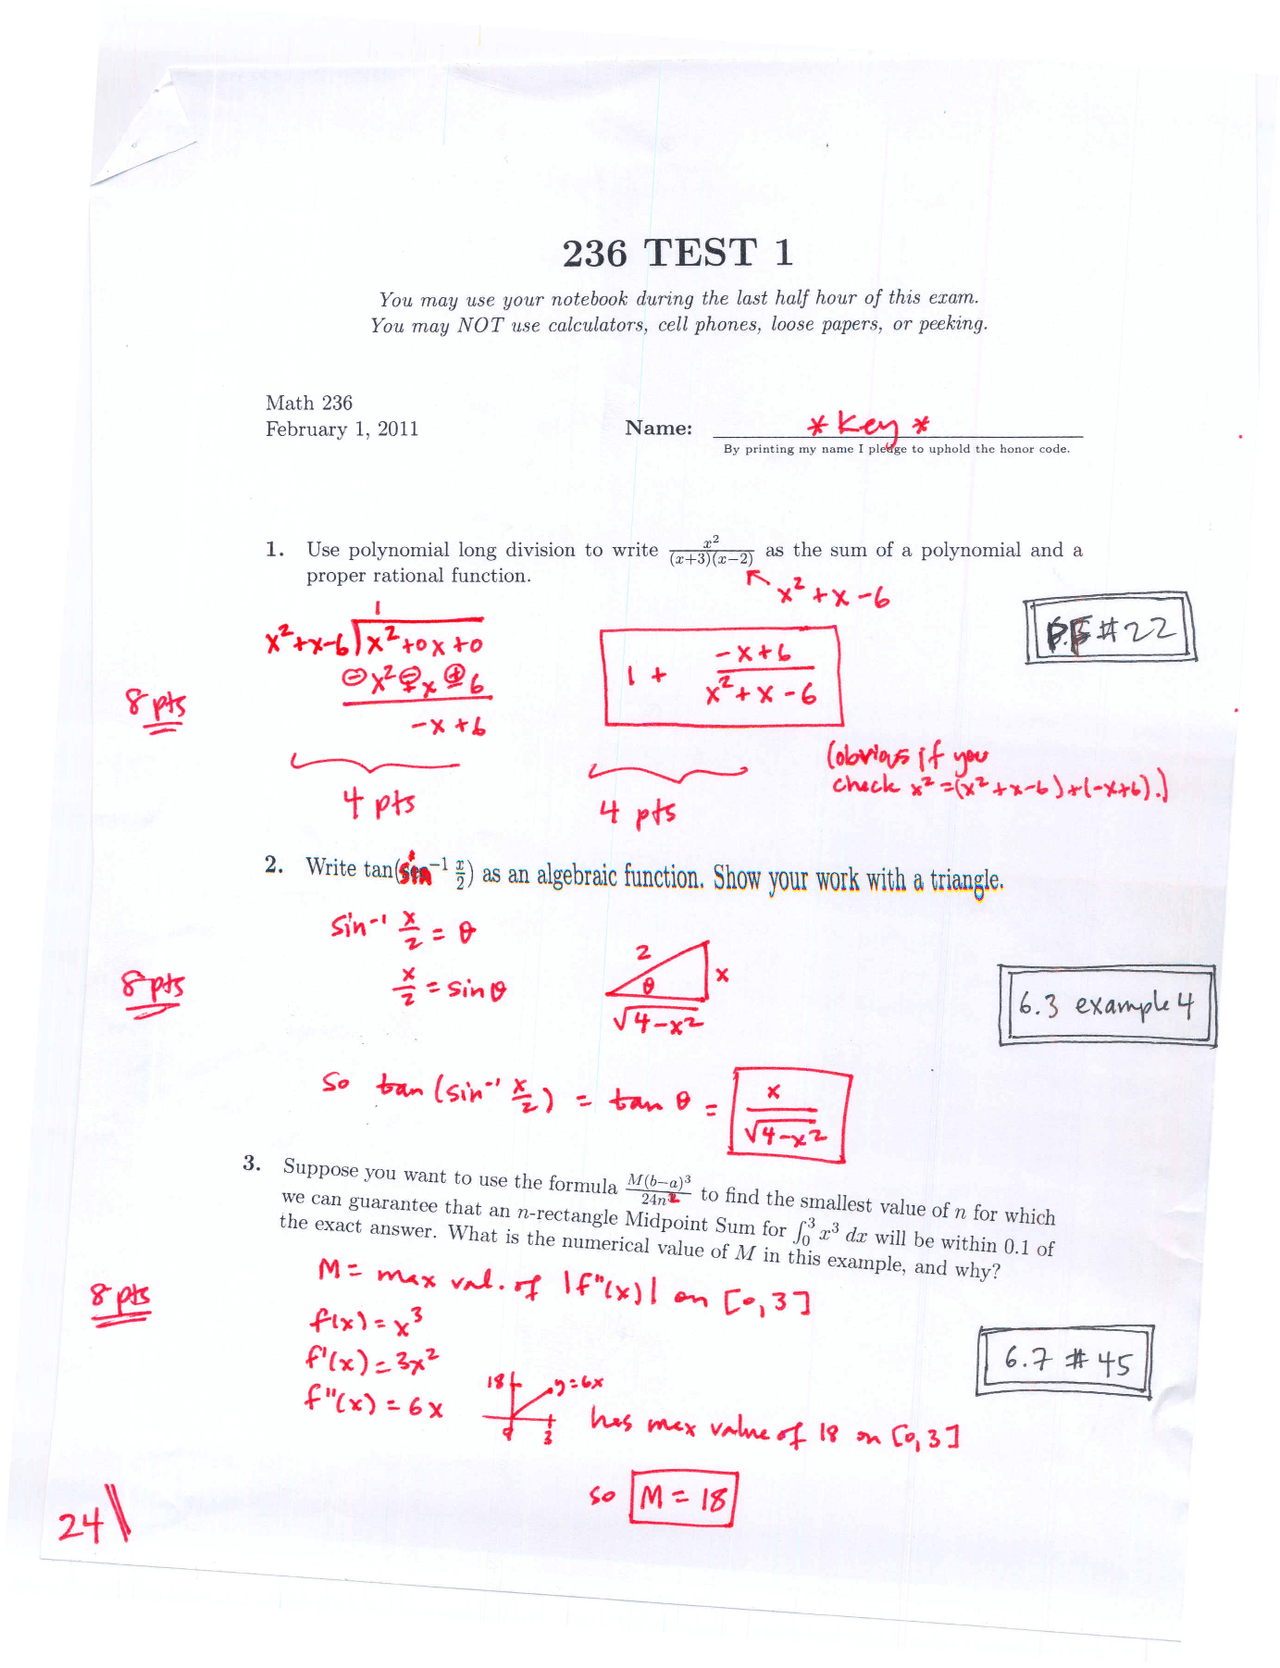 236 TEST 1
You may use your notebook during the last half hour of this exam.
You may NOT use calculators, cell phones, loose papers, or peeking.
Math 236
February 1, 2011
Name: * Key *
By printing my name I pledge to uphold the honor code.
1. Use polynomial long division to write x²/((x+3)(x−2)) as the sum of a polynomial and a
proper rational function.
x²+x−6
1
x²+x−6 ) x²+0x+0
⊖x² ⊖x ⊕6
−x+6
1 + (−x+6)/(x²+x−6)
#22
8 pts
4 pts
4 pts
(obvious if you
check x²=(x²+x−6)+(−x+6).)
2. Write tan(sin⁻¹ x/2) as an algebraic function. Show your work with a triangle.
sin⁻¹ x/2 = θ
x/2 = sin θ
2
θ
x
√(4−x²)
8 pts
6.3 example 4
so tan(sin⁻¹ x/2) = tan θ = x/√(4−x²)
3. Suppose you want to use the formula M(b−a)³/24n² to find the smallest value of n for which
we can guarantee that an n-rectangle Midpoint Sum for ∫₀³ x³ dx will be within 0.1 of
the exact answer. What is the numerical value of M in this example, and why?
M = max val. of |f"(x)| on [0,3]
8 pts
f(x) = x³
f'(x) = 3x²
f"(x) = 6x
18
y=6x
0
3
has max value of 18 on [0,3]
6.7 #45
so M = 18
24